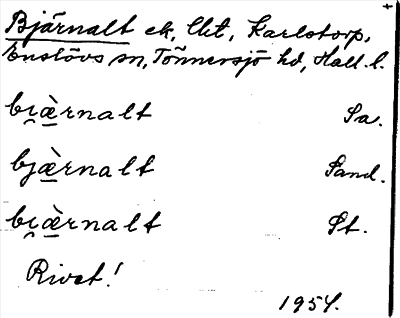 Bjärnalt ck, lht, Karlstorp,
Enslövs sn, Tönnersjö hd, Hall. l.
bi̯æ̀rnalt Sa.
bjæ̀rnalt Sand.
bi̯æ̀rnalt St.
Rivet!
1954.